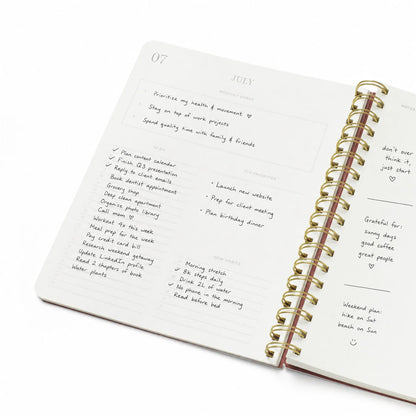 07
JULY
MONTHLY GOALS
Prioritize my health & movement ♡
Stay on top of work projects
Spend quality time with family & friends
TO DO
✓ Plan content calendar
✓ Finish Q3 presentation
✓ Reply to client emails
Book dentist appointment
Grocery shop
Deep clean apartment
Organize photo library
Call mom ♡
Workout 4x this week
Meal prep for the week
Pay credit card bill
Research weekend getaway
Update LinkedIn profile
Read 2 chapters of book
Water plants
TOP PRIORITIES
• Launch new website
• Prep for client meeting
• Plan birthday dinner
NEW HABITS
Morning stretch
✓ 8k steps daily
✓ Drink 2L of water
No phone in the morning
Read before bed
don't over
think it
just start
♡
Grateful for:
sunny days
good coffee
great people
♡
Weekend plan:
hike on Sat
beach on Sun